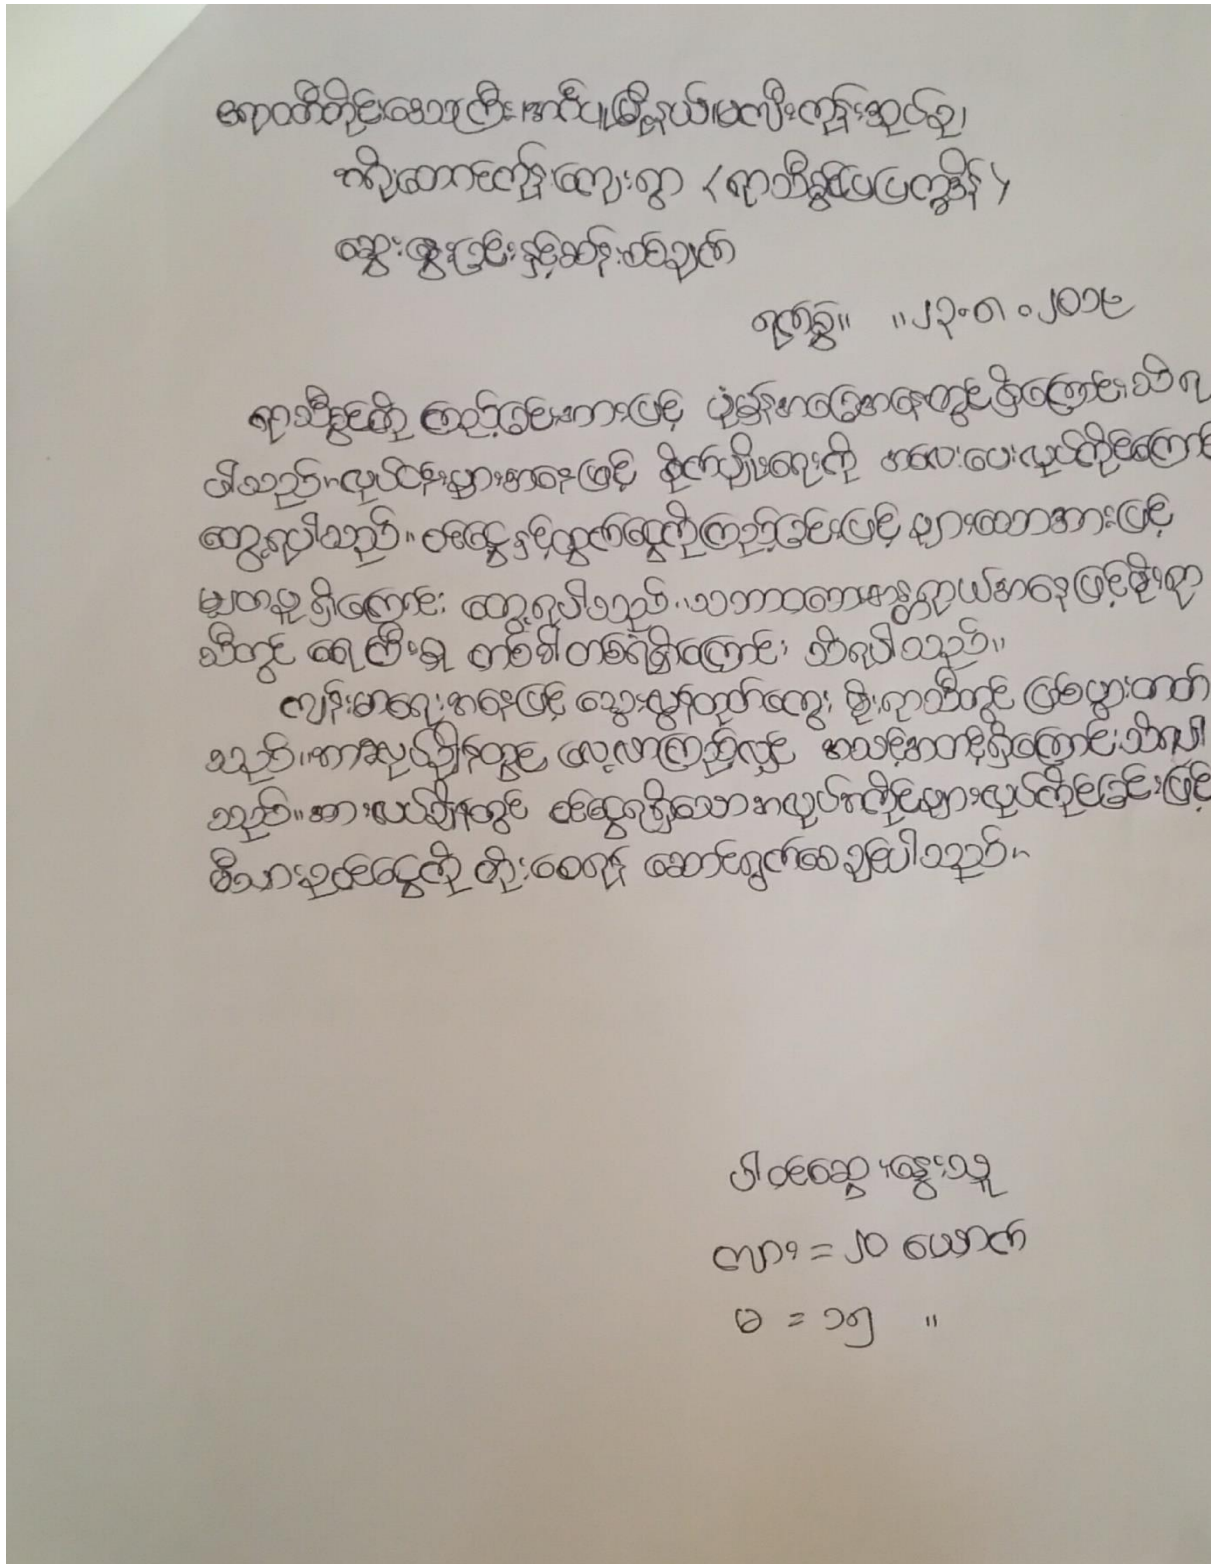 ဧရာဝတီတိုင်းဒေသကြီး၊အင်္ဂပူမြို့နယ်၊မကျီးကုန်းအုပ်စု၊
ကျေးရွာ (ရာသီခွင်ပြပြက္ခဒိန်)
ဆွေးနွေးခြင်းနှင့်ဆန်းစစ်ချက်
ရက်စွဲ။ ။၂၃.၈.၂၀၁၉
ရာသီခွင်ကို ကြည့်ခြင်းအားဖြင့် ပုံမှန်အခြေအနေတွင်ရှိကြောင်းသိရ
ပါသည်။လုပ်ငန်းများအနေဖြင့် စိုက်ပျိုးရေးကို အလေးပေးလုပ်ကိုင်ကြောင်း
တွေ့ရပါသည်။ ဝင်ငွေနှင့်ထွက်ငွေကိုကြည့်ခြင်းဖြင့် များသောအားဖြင့်
မျှတမှုရှိကြောင်း တွေ့ရပါသည်။သဘာဝဘေးအန္တရာယ်အနေဖြင့်မိုးရာ
သီတွင် ရေကြီးမှု တစ်ခါတစ်ရံရှိကြောင်း သိရပါသည်။
ကျန်းမာရေးအနေဖြင့် သွေးလွန်တုပ်ကွေး မိုးရာသီတွင် ဖြစ်ပွားတတ်
သည်။အားလပ်ချိန်တွင် လေ့လာကြည့်လျှင် အသင့်အတင့်ရှိကြောင်းသိရပါ
သည်။အားလပ်ချိန်တွင် ဝင်ငွေရရှိသောအလုပ်အကိုင်များလုပ်ကိုင်ခြင်းဖြင့်
မိသားစုဝင်ငွေကို တိုးစေရန် ဆောင်ရွက်စေချင်ပါသည်။
ပါဝင်ဆွေးနွေးသူ
ကျား = ၂၀ ယောက်
မ = ၁၅ "